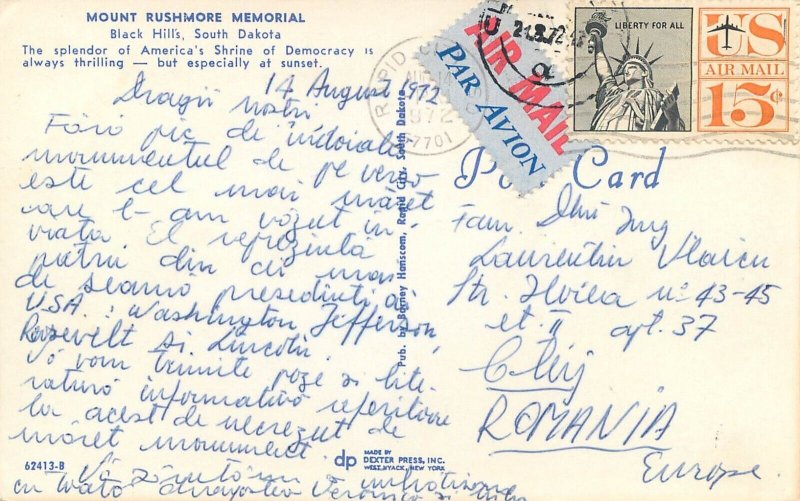 MOUNT RUSHMORE MEMORIAL
Black Hills, South Dakota
The splendor of America's Shrine of Democracy is
always thrilling — but especially at sunset.
14 August 1972
Dragii nostri
Fără pic de îndoială
monumentul de pe verso
este cel mai măreț
care l-am văzut în
viața. El reprezintă
patru din cei mai
de seamă președinți ai
USA: Washington, Jefferson,
Roosevelt și Lincoln.
Vă vom trimite poze și lite-
ratură informativă referitoare
la acest de necrezut de
măreț monument.
Vă
cu toată dragostea Veronica și
62413-B
Pub. by Barney Hanscom, Rapid City, South Dakota
MADE BY
dp DEXTER PRESS, INC.
WEST NYACK, NEW YORK
RAPID
AUG 14
1972
57701
AIR MAIL
PAR AVION
21.8.72
LIBERTY FOR ALL
US
AIR MAIL
15¢
Post Card
Fam. Ing
Laurentiu Vlaicu
Str. nº 43-45
et. II apt. 37
Cluj
ROMANIA
Europe